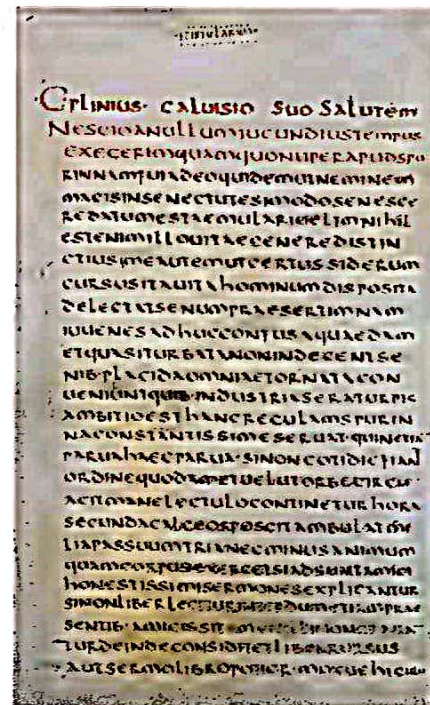 ·EPISTULARUM·
C·PLINIUS· CALUISIO SUO SALUTEM
NESCIOANULLUMIUCUNDIUSTEMPUS
EXEGERIMQUAMQUONUPERAPUDSPU
RINNAMFUIADEOQUIDEMUTNEMINEM
MAGISINSENECTUTESIMODOSENESCE
REDATUMESTAEMULARIUELIMNIHIL
ESTENIMILLOUITAEGENEREDISTIN
CTIUSMEAUTEMUTCERTUSSIDERUM
CURSUSITAUITAHOMINUMDISPOSITA
DELECTATSENUMPRAESERTIMNAM
IUUENESADHUCCONFUSAQUAEDAM
ETQUASITURBATANONINDECENTSE
NIB·PLACIDAOMNIAETORNATACON
UENIUNTQUIB·INDUSTRIASERATURPIS
AMBITIOESTHANCREGULAMSPURIN
NACONSTANTISSIMESERUAT·QUINETIA
PARUAHAECPARUA·SINONCOTIDIEFIANT
ORDINEQUODAMETUELUTORBECIRCU
AGITMANELECTULOCONTINETURHORA
SECUNDACALCEOSPOSCITAMBULATMI
LIAPASSUUMTRIANECMINUSANIMUM
QUAMCORPUSEXERCETSIADSUNTAMICI
HONESTISSIMISERMONESEXPLICANTUR
SINONLIBERLEGITURINTERDUMETIAMPRAE
SENTIB·AMICISSI
TURDEINDECONSIDITETLIBERRURSUS
AUTSERMOLIBROPOTIOR·MOXUEHICU